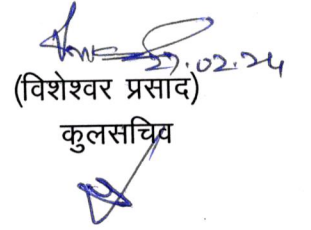 27.02.24
(विशेश्वर प्रसाद)
कुलसचिव